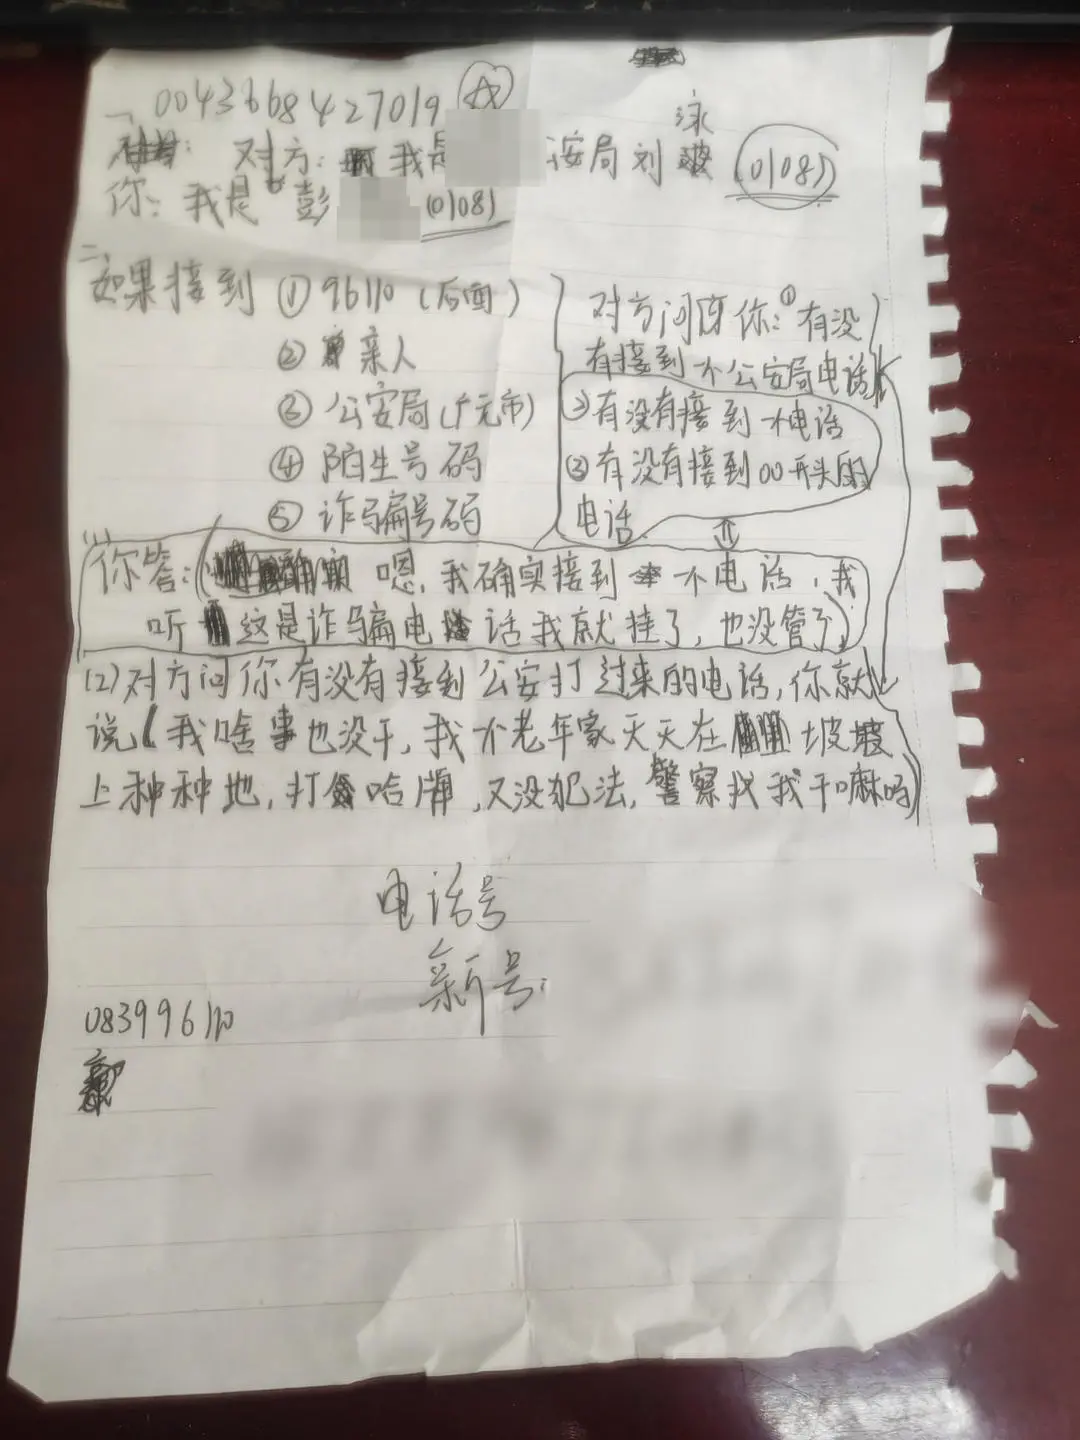 一 0043668427019
对方: 我是 安局刘泳 (0108)
你: 我是 彭 (0108)
二、
如果接到 ① 96110 (后面)
② 亲人
③ 公安局(广元市)
④ 陌生号码
⑤ 诈骗号码
对方问你: ① 有没
有接到个公安局电话
② 有没有接到个电话
③ 有没有接到00开头的
电话
(1)
你答: ( 嗯, 我确实接到一个电话, 我
听 这是诈骗电话我就挂了, 也没管了)
(2) 对方问你有没有接到公安打过来的电话, 你就
说 ( 我啥事也没干, 我个老年家天天在 坡坡
上种种地, 打哈牌, 又没犯法, 警察找我干嘛吗)
电话号
新号:
083996110